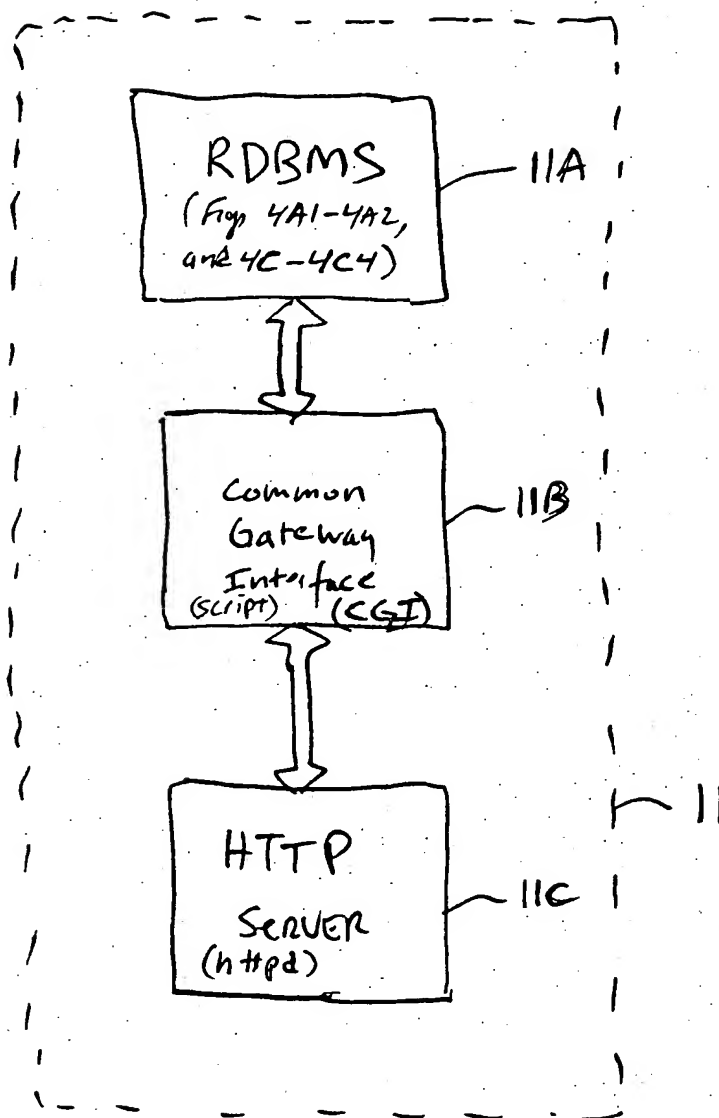 RDBMS
(Figs 4A1-4A2,
and 4C-4C4)
11A
Common
Gateway
Interface
(script) (CGI)
11B
11
HTTP
SERVER
(httpd)
11C